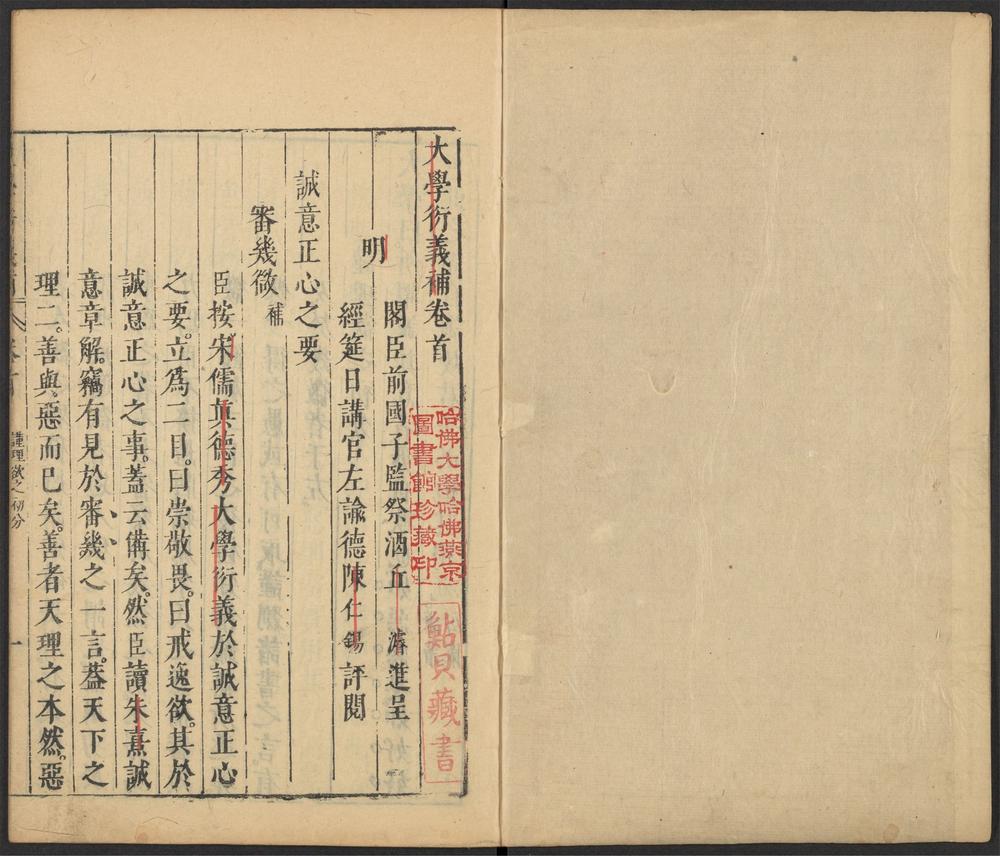 大學衍義補卷首
明
閣臣前國子監祭酒丘濬進呈
經筵日講官左諭德陳仁錫評閱
誠意正心之要
審幾微補
臣按宋儒真德秀大學衍義於誠意正心
之要。立爲二目。曰崇敬畏。曰戒逸欲。其於
誠意正心之事。蓋云備矣。然臣讀朱熹誠
意章解。竊有見於審幾之一言。蓋天下之
理二。善與惡而已矣。善者天理之本然。惡
謹理欲之初分
一
哈佛大學哈佛燕京
圖書館珍藏印
藏書